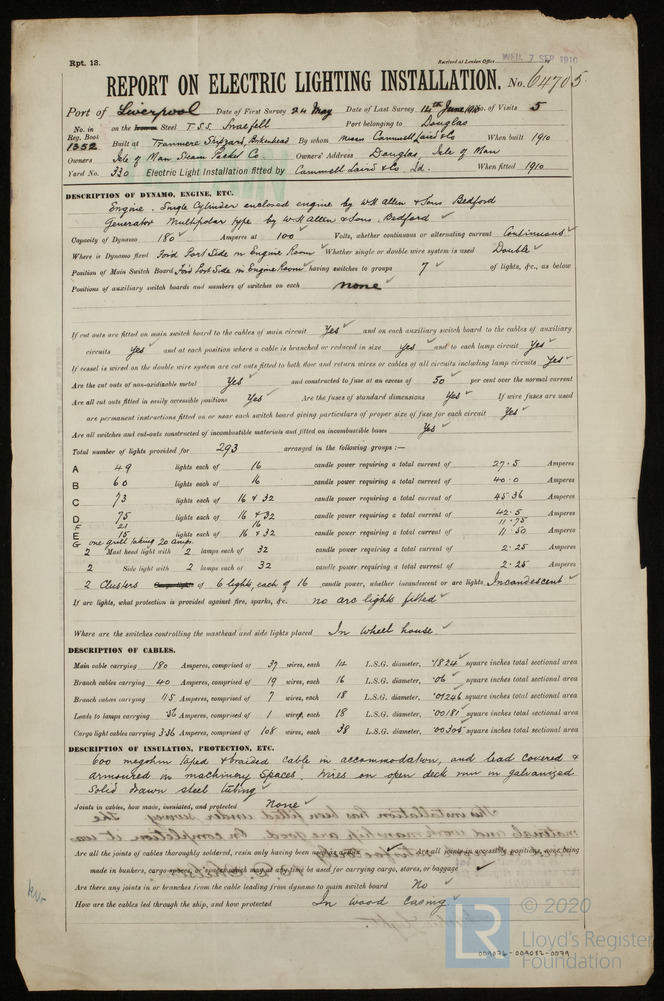 Rpt. 13.
Received at London Office WED. 7 SEP 1910
REPORT ON ELECTRIC LIGHTING INSTALLATION. No. 64705.
Port of Liverpool Date of First Survey 24 May Date of Last Survey 14th June 1910 No. of Visits 5
No. in Reg. Book 1352 on the Iron or Steel T.S.S. Snaefell Port belonging to Douglas
Built at Tranmere Shipyard, Birkenhead By whom Messrs Cammell Laird & Co When built 1910
Owners Isle of Man Steam Packet Co. Owners' Address Douglas, Isle of Man
Yard No. 330 Electric Light Installation fitted by Cammell Laird & Co Ld. When fitted 1910
DESCRIPTION OF DYNAMO, ENGINE, ETC.
Engine. Single Cylinder enclosed engine by W H Allen & Sons Bedford
Generator Multipolar type by W H Allen & Sons. Bedford
Capacity of Dynamo 180 Amperes at 100 Volts, whether continuous or alternating current Continuous
Where is Dynamo fixed For'd Port Side in Engine Room Whether single or double wire system is used Double
Position of Main Switch Board For'd Port Side in Engine Room having switches to groups 7 of lights, &c., as below
Positions of auxiliary switch boards and numbers of switches on each none
If cut outs are fitted on main switch board to the cables of main circuit Yes and on each auxiliary switch board to the cables of auxiliary
circuits Yes and at each position where a cable is branched or reduced in size Yes and to each lamp circuit Yes
If vessel is wired on the double wire system are cut outs fitted to both flow and return wires or cables of all circuits including lamp circuits Yes
Are the cut outs of non-oxidizable metal Yes and constructed to fuse at an excess of 50 per cent over the normal current
Are all cut outs fitted in easily accessible positions Yes Are the fuses of standard dimensions Yes If wire fuses are used
are permanent instructions fitted on or near each switch board giving particulars of proper size of fuse for each circuit Yes
Are all switches and cut-outs constructed of incombustible materials and fitted on incombustible bases Yes
Total number of lights provided for 293 arranged in the following groups :—
A 49 lights each of 16 candle power requiring a total current of 27.5 Amperes
B 60 lights each of 16 candle power requiring a total current of 40.0 Amperes
C 73 lights each of 16 & 32 candle power requiring a total current of 45.36 Amperes
D 75 lights each of 16 & 32 candle power requiring a total current of 42.5 Amperes
F 21 16 11.75
E 15 lights each of 16 & 32 candle power requiring a total current of 11.50 Amperes
G one grill taking 20 amps.
2 Mast head light with 2 lamps each of 32 candle power requiring a total current of 2.25 Amperes
2 Side light with 2 lamps each of 32 candle power requiring a total current of 2.25 Amperes
2 Clusters of 6 lights, each of 16 candle power, whether incandescent or arc lights Incandescent
If arc lights, what protection is provided against fire, sparks, &c. no arc lights fitted
Where are the switches controlling the masthead and side lights placed In wheel house
DESCRIPTION OF CABLES.
Main cable carrying 180 Amperes, comprised of 37 wires, each 14 L.S.G. diameter, .1824 square inches total sectional area
Branch cables carrying 40 Amperes, comprised of 19 wires, each 16 L.S.G. diameter, .06 square inches total sectional area
Branch cables carrying 11.5 Amperes, comprised of 7 wires, each 18 L.S.G. diameter, .01246 square inches total sectional area
Leads to lamps carrying .56 Amperes, comprised of 1 wires, each 18 L.S.G. diameter, .00181 square inches total sectional area
Cargo light cables carrying 3.36 Amperes, comprised of 108 wires, each 38 L.S.G. diameter, .00305 square inches total sectional area
DESCRIPTION OF INSULATION, PROTECTION, ETC.
600 megohm taped & braided cable in accommodation, and lead covered &
armoured in machinery spaces. Wires on open deck run in galvanized
Solid drawn steel tubing
Joints in cables, how made, insulated, and protected None
Are all the joints of cables thoroughly soldered, resin only having been Are all joints in accessible positions, none being
made in bunkers, cargo spaces, or spaces which may at any time be used for carrying cargo, stores, or baggage
Are there any joints in or branches from the cable leading from dynamo to main switch board No
How are the cables led through the ship, and how protected In wood casing
LR © 2020
Lloyd's Register
Foundation
009076-009082-0079